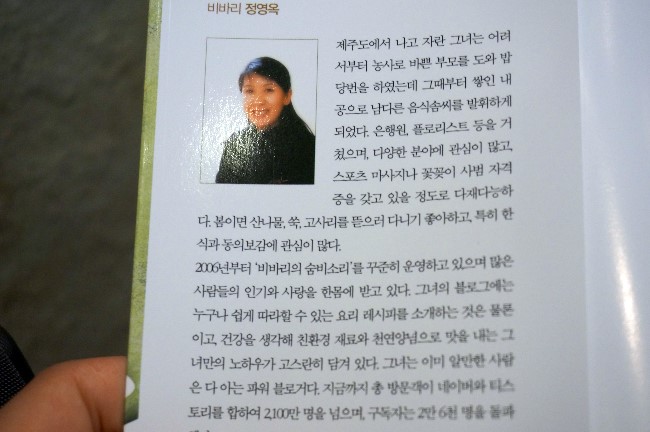 비바리 정영옥
제주도에서 나고 자란 그녀는 어려
서부터 농사로 바쁜 부모를 도와 밥
당번을 하였는데 그때부터 쌓인 내
공으로 남다른 음식솜씨를 발휘하게
되었다. 은행원, 플로리스트 등을 거
쳤으며, 다양한 분야에 관심이 많고,
스포츠 마사지나 꽃꽂이 사범 자격
증을 갖고 있을 정도로 다재다능하
다. 봄이면 산나물, 쑥, 고사리를 뜯으러 다니기 좋아하고, 특히 한
식과 동의보감에 관심이 많다.
2006년부터 '비바리의 숨비소리'를 꾸준히 운영하고 있으며 많은
사람들의 인기와 사랑을 한몸에 받고 있다. 그녀의 블로그에는
누구나 쉽게 따라할 수 있는 요리 레시피를 소개하는 것은 물론
이고, 건강을 생각해 친환경 재료와 천연양념으로 맛을 내는 그
녀만의 노하우가 고스란히 담겨 있다. 그녀는 이미 알만한 사람
은 다 아는 파워 블로거다. 지금까지 총 방문객이 네이버와 티스
토리를 합하여 2,100만 명을 넘으며, 구독자는 2만 6천 명을 돌파